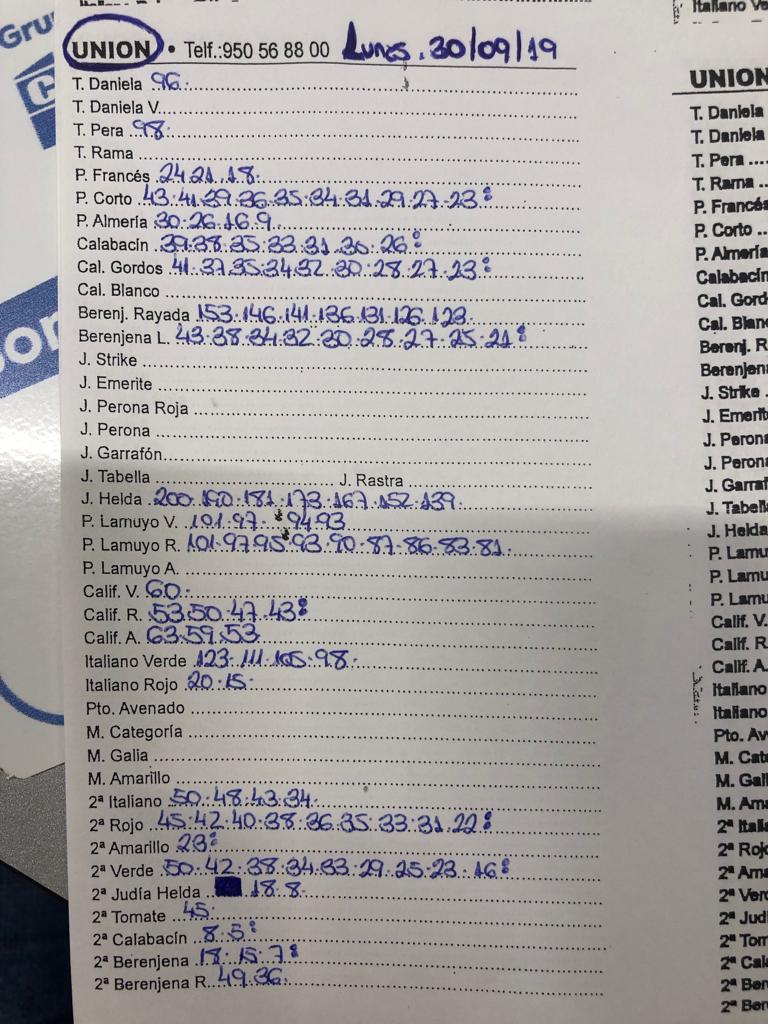 Gru
UNION • Telf.:950 56 88 00 Lunes. 30/09/19
T. Daniela 96.
T. Daniela V.
T. Pera 98.
T. Rama
P. Francés 24.21.18.
P. Corto 43.41.39.36.35.34.31.29.27.23
P. Almería 30.26.16.9
Calabacín 39.38.35.33.31.30.26
Cal. Gordos 41.37.35.34.32.30.28.27.23
Cal. Blanco
Berenj. Rayada 153.146.141.136.131.126.123
Berenjena L. 43.38.34.32.30.28.27.25.21
J. Strike
J. Emerite
J. Perona Roja
J. Perona
J. Garrafón
J. Tabella J. Rastra
J. Helda 200.190.181.173.167.152.139.
P. Lamuyo V. 101.97. 94.93
P. Lamuyo R. 101.97.95.93.90.87.86.83.81.
P. Lamuyo A.
Calif. V. 60.
Calif. R. 53.50.47.43
Calif. A. 63.59.53
Italiano Verde 123.111.105.98.
Italiano Rojo 20.15.
Pto. Avenado
M. Categoría
M. Galia
M. Amarillo
2ª Italiano 50.48.43.34.
2ª Rojo 45.42.40.38.36.35.33.31.22
2ª Amarillo 23
2ª Verde 50.42.38.34.33.29.25.23.16
2ª Judía Helda 18.8.
2ª Tomate 45.
2ª Calabacín 8.5
2ª Berenjena 18.15.7
2ª Berenjena R. 49.36.
Italiano Ve
UNION
T. Daniela
T. Daniela
T. Pera
T. Rama
P. Francés
P. Corto
P. Almería
Calabacín
Cal. Gord
Cal. Blan
Berenj. R
Berenjena
J. Strike
J. Emerit
J. Perona
J. Perona
J. Garraf
J. Tabell
J. Helda
P. Lamu
P. Lamu
P. Lamu
Calif. V.
Calif. R
Calif. A
Italiano
Italiano
Pto. Av
M. Cat
M. Gal
M. Ama
2ª Itali
2ª Rojo
2ª Ama
2ª Verd
2ª Jud
2ª Tom
2ª Cal
2ª Ber
2ª Ber